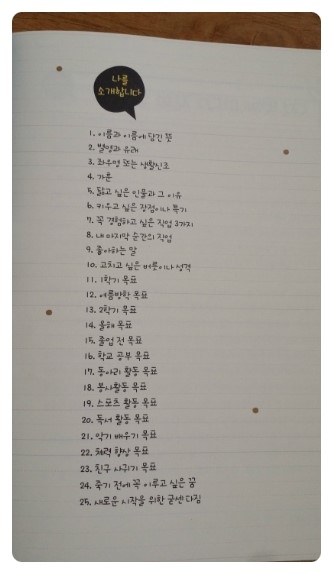 나를
소개합니다
1. 이름과 이름에 담긴 뜻
2. 별명과 유래
3. 좌우명 또는 생활신조
4. 가훈
5. 닮고 싶은 인물과 그 이유
6. 키우고 싶은 장점이나 특기
7. 꼭 경험하고 싶은 직업 3가지
8. 내 마지막 순간의 직업
9. 좋아하는 말
10. 고치고 싶은 버릇이나 성격
11. 1학기 목표
12. 여름방학 목표
13. 2학기 목표
14. 올해 목표
15. 졸업 전 목표
16. 학교 공부 목표
17. 동아리 활동 목표
18. 봉사활동 목표
19. 스포츠 활동 목표
20. 독서 활동 목표
21. 악기 배우기 목표
22. 체력 향상 목표
23. 친구 사귀기 목표
24. 죽기 전에 꼭 이루고 싶은 꿈
25. 새로운 시작을 위한 굳센 다짐